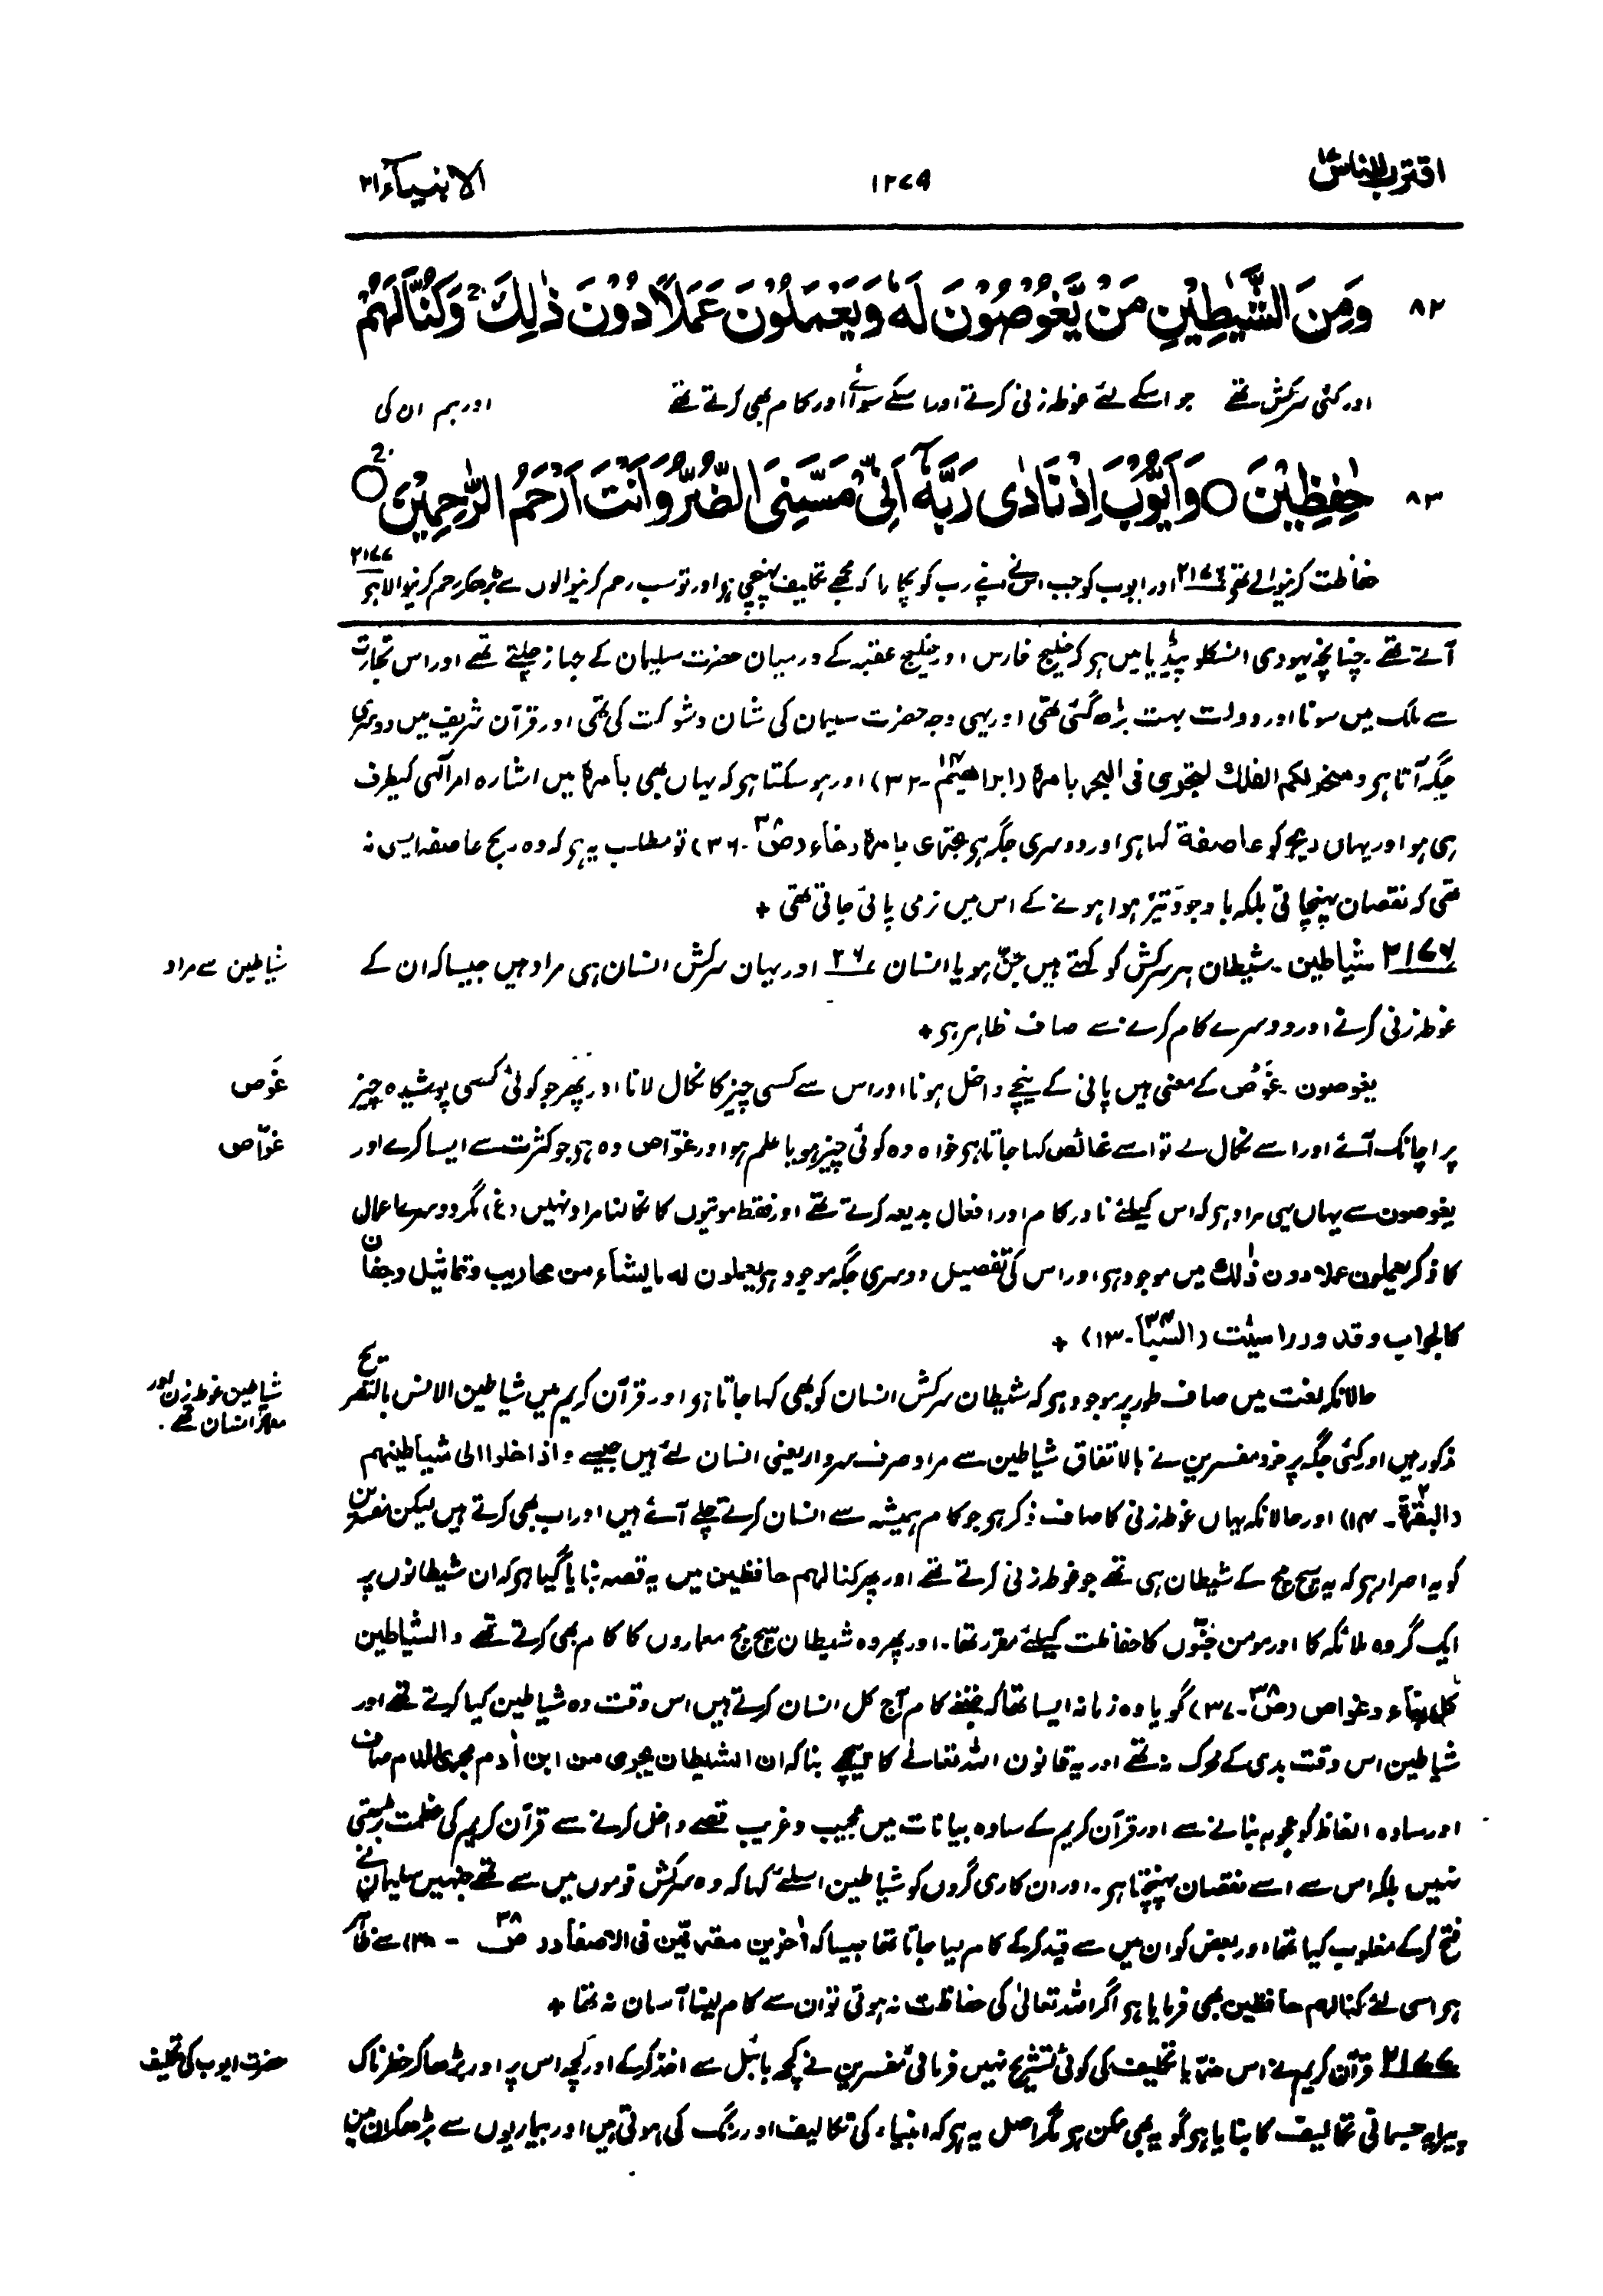 اقترب للناس ۱۷
۱۲۷۹
الانبیآء ۲۱
۸۲ وَمِنَ الشَّیٰطِیْنِ مَنْ یَّغُوْصُوْنَ لَهٗ وَیَعْمَلُوْنَ عَمَلًا دُوْنَ ذٰلِكَ ۚ وَكُنَّا لَهُمْ
اور کئی سرکش تھے جو اسکے لئے غوطہ زنی کرتے اور اسکے سوائے اور کام بھی کرتے تھے اور ہم ان کی
۸۳ حٰفِظِیْنَ ○ وَاَیُّوْبَ اِذْ نَادٰی رَبَّهٗۤ اَنِّیْ مَسَّنِیَ الضُّرُّ وَاَنْتَ اَرْحَمُ الرّٰحِمِیْنَ ○
حفاظت کرنیوالے تھے ۲۱۷۶ اور ایوب کو جب اس نے اپنے رب کو پکارا کہ مجھے تکلیف پہنچی ہو اور تو سب رحم کرنیوالوں سے بڑھکر رحم کرنیوالا ہو ۲۱۷۷
آتے تھے۔ چنانچہ یہودی انسکلوپیڈیا میں ہو کہ خلیج فارس اور خلیج عقبہ کے درمیان حضرت سلیمان کے جہاز چلتے تھے اور اس تجارت
سے ملک میں سونا اور دولت بہت بڑھ گئی تھی اور یہی وجہ حضرت سلیمان کی شان و شوکت کی تھی اور قرآن شریف میں دوسری
جگہ آتا ہو وسخر لکم الفلك لتجری فی البحر بامرہ (ابراھیم ۱۴۔ ۳۲) اور ہو سکتا ہو کہ یہاں بھی بامرہ میں اشارہ امر الٰہی کیطرف
ہی ہو اور یہاں ریح کو عاصفة کہا ہو اور دوسری جگہ ہو تجری بامرہ رخاء (ص ۳۸۔ ۳۶) تو مطلب یہ ہو کہ وہ ریح عاصفہ ایسی نہ
تھی کہ نقصان پہنچاتی بلکہ باوجود تیز ہوا ہونے کے اس میں نرمی پائی جاتی تھی +
۲۱۷۶ شیاطین۔ شیطان ہر سرکش کو کہتے ہیں جن ہو یا انسان ۲۶ اور یہاں سرکش انسان ہی مراد ہیں جیسا کہ ان کے
شیاطین سے مراد
غوطہ زنی کرنے اور دوسرے کام کرنے سے صاف ظاہر ہو +
یغوصون۔ غَوص کے معنی ہیں پانی کے نیچے داخل ہونا اور اس سے کسی چیز کا نکال لانا اور پھر جو کوئی کسی پوشیدہ چیز
غَوص
پر اچانک آئے اور اسے نکال لے تو اسے غائص کہا جاتا ہو خواہ وہ کوئی چیز ہو یا علم ہو اور غوّاص وہ ہو جو کثرت سے ایسا کرے اور
غوّاص
یغوصون سے یہاں یہی مراد ہو کہ اس کیلئے نادر کام اور افعال بدیعہ کرتے تھے اور فقط موتیوں کا نکالنا مراد نہیں (غ) مگر دوسرے اعمال
کا ذکر یعملون عملا دون ذٰلك میں موجود ہو اور اس کی تفصیل دوسری جگہ موجود ہو یعملون له ما یشاء من محاریب وتماثیل وجفان
کالجواب وقدور راسیٰت (السبا ۳۴۔ ۱۳) +
حالانکہ لغت میں صاف طور پر موجود ہو کہ شیطان سرکش انسان کو بھی کہا جاتا ہو اور قرآن کریم میں شیاطین الانس بالتصریح
شیاطین غوطہ زن اور معمار انسان تھے۔
مذکور ہیں اور کئی جگہ پر خود مفسرین نے بالاتفاق شیاطین سے مراد صرف سردار یعنی انسان لئے ہیں جیسے واذا خلوا الی شیاطینهم
(البقرة ۲۔ ۱۴) اور حالانکہ یہاں غوطہ زنی کا صاف ذکر ہو جو کام ہمیشہ سے انسان کرتے چلے آئے ہیں اور اب بھی کرتے ہیں لیکن مفسرین
کو یہ اصرار ہو کہ یہ سچ مچ کے شیطان ہی تھے جو غوطہ زنی کرتے تھے اور پھر کنا لهم حافظین میں یہ قصہ بنایا گیا ہو کہ ان شیطانوں پر
ایک گروہ ملائکہ کا اور مومن جنّوں کا حفاظت کیلئے مقرر تھا۔ اور پھر وہ شیطان سچ مچ معماروں کا کام بھی کرتے تھے والشیاطین
کل بناء وغواص (ص ۳۸۔ ۳۷) گویا وہ زمانہ ایسا تھا کہ جتنے کام آج کل انسان کرتے ہیں اس وقت وہ شیاطین کیا کرتے تھے اور
شیاطین اس وقت بدی کے محرک نہ تھے اور یہ قانون اللہ تعالےٰ کا پیچھے بنا کہ ان الشیطان یجری من ابن اٰدم مجری الدم صاف
اور سادہ الفاظ کو عجوبہ بنانے سے اور قرآن کریم کے سادہ بیانات میں عجیب و غریب قصے داخل کرنے سے قرآن کریم کی عظمت بڑھتی
نہیں بلکہ اس سے اسے نقصان پہنچتا ہو۔ اور ان کاری گروں کو شیاطین اسلئے کہا کہ وہ سرکش قوموں میں سے تھے جنہیں سلیمان نے
فتح کر کے مغلوب کیا تھا اور بعض کو ان میں سے قید کر کے کام لیا جاتا تھا جیسا کہ اٰخرین مقرنین فی الاصفاد (ص ۳۸۔ ۳۸) سے ظاہر
ہو اسی لئے کنا لهم حافظین بھی فرمایا ہو اگر اللہ تعالیٰ کی حفاظت نہ ہوتی تو ان سے کام لینا آسان نہ تھا +
۲۱۷۷ قرآن کریم نے اس ضرّ یا تکلیف کی کوئی تشریح نہیں فرمائی مفسرین نے کچھ بائبل سے اخذ کر کے اور کچھ اس پر اور بڑھا کر خطرناک
حضرت ایوب کی تکلیف
پیرایہ جسمانی تکالیف کا بنایا ہو گو یہ بھی ممکن ہو مگر اصل یہ ہو کہ انبیاء کی تکالیف اور رنگ کی ہوتی ہیں اور بیماریوں سے بڑھکر ان میں